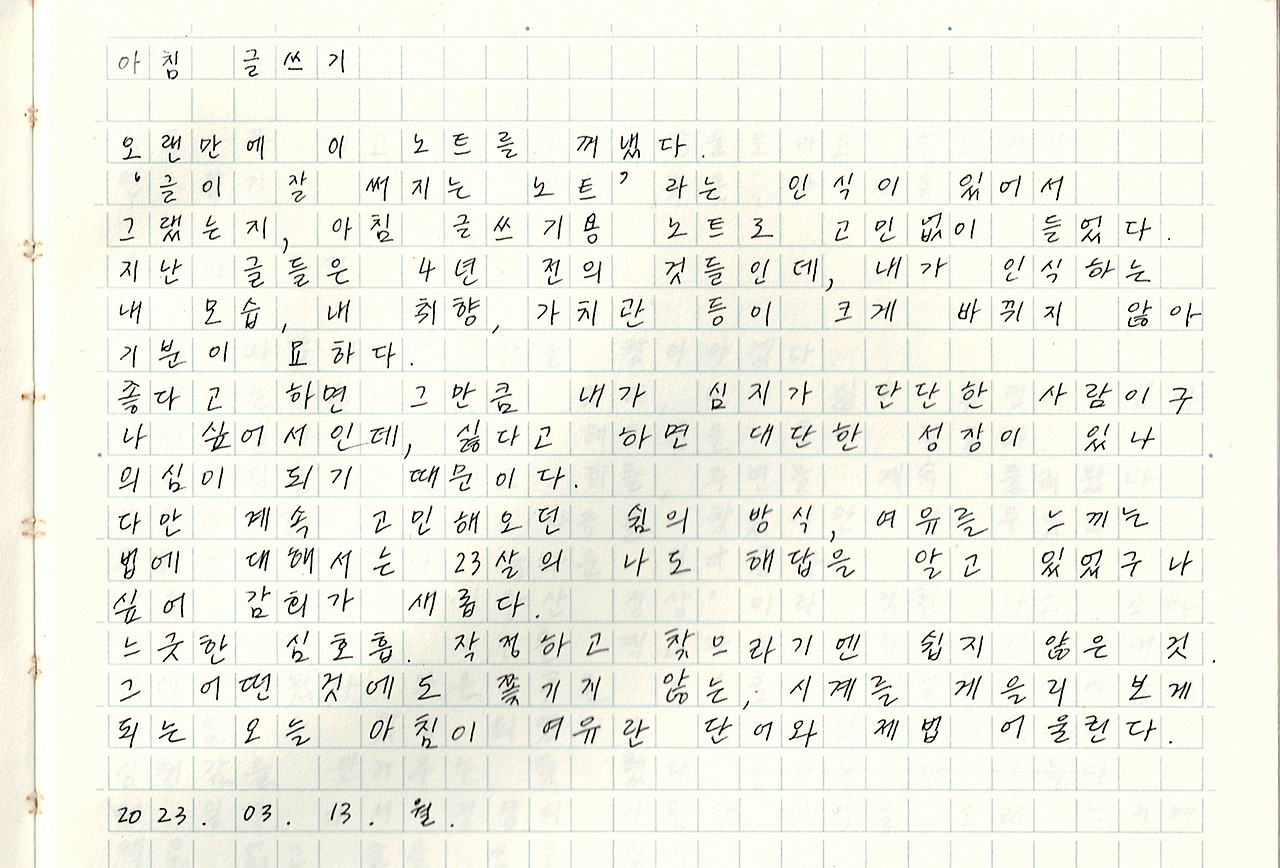 아침 글쓰기
오랜만에 이 노트를 꺼냈다.
'글이 잘 써지는 노트' 라는 인식이 있어서
그랬는지, 아침 글쓰기용 노트로 고민없이 들었다.
지난 글들은 4년 전의 것들인데, 내가 인식하는
내 모습, 내 취향, 가치관 등이 크게 바뀌지 않아
기분이 묘하다.
좋다고 하면 그만큼 내가 심지가 단단한 사람이구
나 싶어서인데, 싫다고 하면 대단한 성장이 있나
의심이 되기 때문이다.
다만 계속 고민해오던 쉼의 방식, 여유를 느끼는
법에 대해서는 23살의 나도 해답을 알고 있었구나
싶어 감회가 새롭다.
느긋한 심호흡. 작정하고 찾으라기엔 쉽지 않은 것.
그 어떤 것에도 쫓기지 않는, 시계를 게을리 보게
되는 오늘 아침이 여유란 단어와 제법 어울린다.
2023. 03. 13. 월.